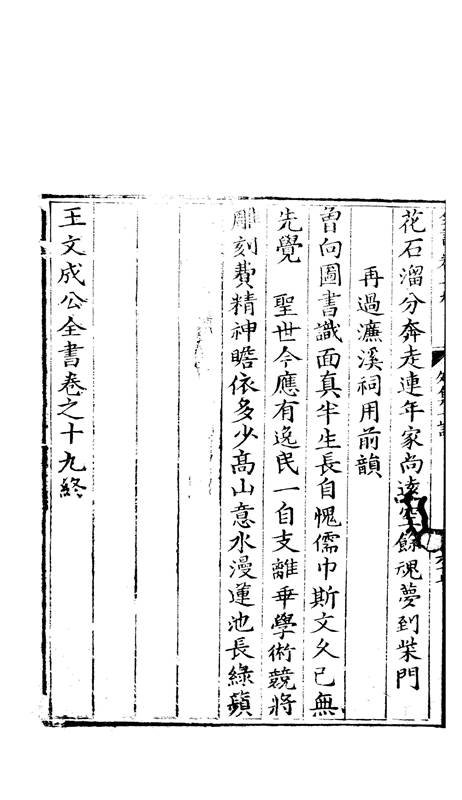 花石溜分奔走連年家尚遠空餘魂夢到柴門
再過濂溪祠用前韻
曾向圖書識面真半生長自愧儒巾斯文久已無
先覺　聖世今應有逸民一自支離乖學術競將
雕刻費精神瞻依多少高山意水漫蓮池長綠蘋
王文成公全書卷之十九終